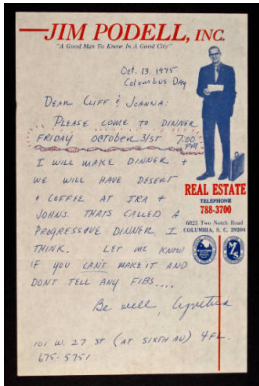 JIM PODELL, INC.
"A Good Man To Know In A Good City"
Oct. 13, 1975
Columbus Day
DEAR CLIFF & JOANNA:
PLEASE COME TO DINNER
FRIDAY OCTOBER 31ST 7:00 PM
I WILL MAKE DINNER +
WE WILL HAVE DESERT
+ COFFEE AT IRA +
JOHNS. THATS CALLED A
PROGRESSIVE DINNER I
THINK. LET ME KNOW
IF YOU CAN'T MAKE IT AND
DONT TELL ANY FIBS....
Be well, Cynthia
101 W. 27 ST (AT SIXTH AV) 4FL.
675-5751
REAL ESTATE
TELEPHONE
788-3700
6022 Two Notch Road
COLUMBIA, S. C. 29204